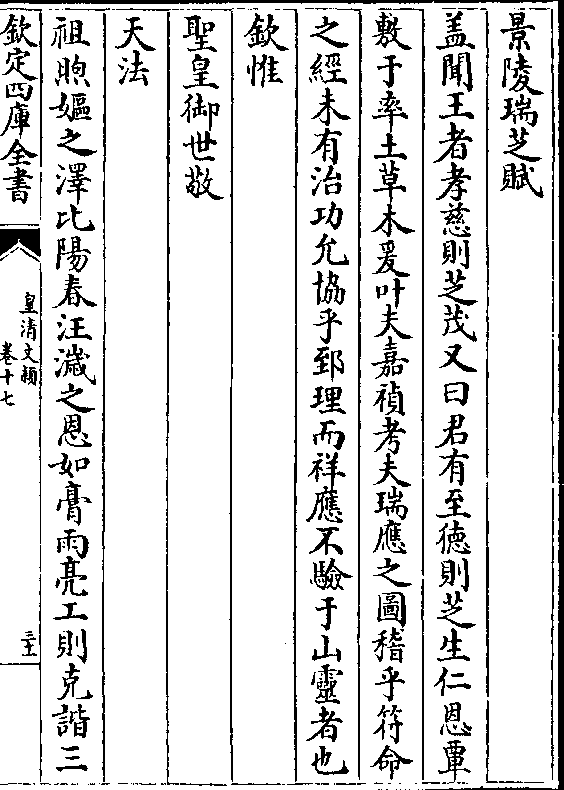 景陵瑞芝賦
盖聞王者孝慈則芝茂又曰君有至德則芝生仁恩覃
敷于率土草木爰叶夫嘉禎考夫瑞應之圖稽乎符命
之經未有治功允協乎郅理而祥應不驗于山靈者也
欽惟
聖皇御世敬
天法
祖煦嫗之澤比陽春汪濊之恩如膏雨亮工則克諧三
欽定四庫全書
皇清文穎
卷十七
三十五